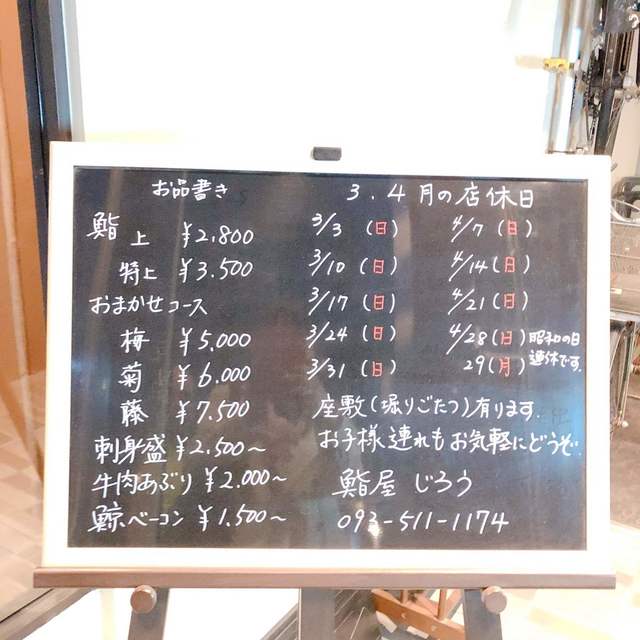 お品書き
鮨 上 ¥2,800
特上 ¥3,500
おまかせコース
梅 ¥5,000
菊 ¥6,000
藤 ¥7,500
刺身盛 ¥2,500〜
牛肉あぶり ¥2,000〜
鯨ベーコン ¥1,500〜
3.4月の店休日
3/3 (日) 4/7 (日)
3/10 (日) 4/14 (日)
3/17 (日) 4/21 (日)
3/24 (日) 4/28 (日) 昭和の日
3/31 (日) 29 (月) 連休です。
座敷(堀りごたつ)有ります。
お子様連れもお気軽にどうぞ。
鮨屋 じろう
093-511-1174